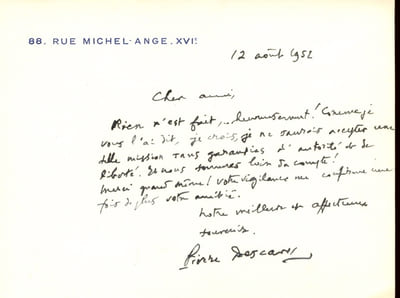 88. RUE MICHEL-ANGE. XVIᵉ
12 août 1952
Cher ami,
Rien n'est fait,... heureusement! Comme je
vous l'ai dit, je crois, je ne saurais accepter une
telle mission sans garanties d'autorité et de
liberté. Et nous sommes loin du compte!
Merci quand même! Votre vigilance me confirme une
fois de plus votre amitié.
Notre meilleur et affectueux
souvenir.
Pierre Descaves